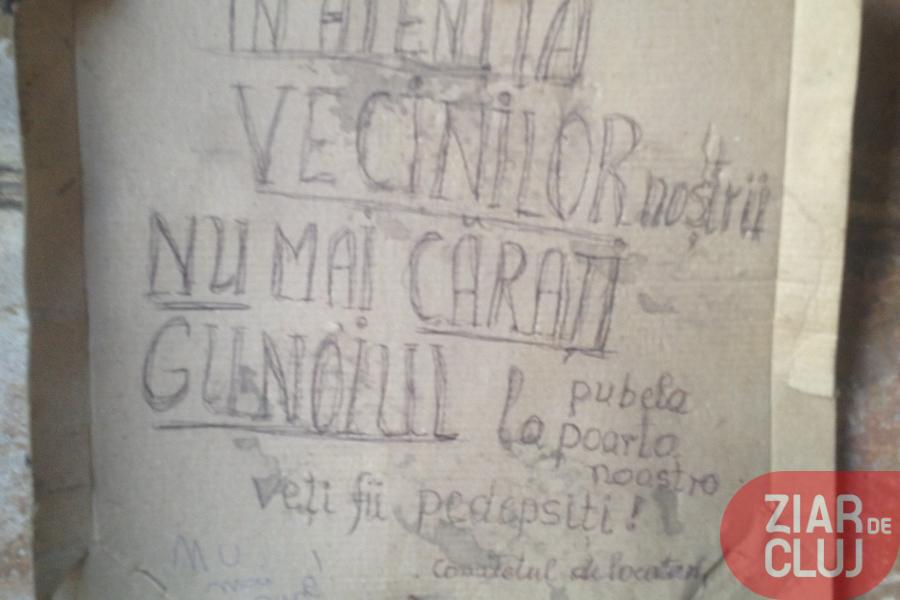 IN ATENȚIA
VECINILOR noștrii
NU MAI CĂRAȚI
GUNOIUL la pubela
poarta
noastro
veți fii pedopsiți!
comitetul de locatari
MU
mai
ZIAR DE
CLUJ